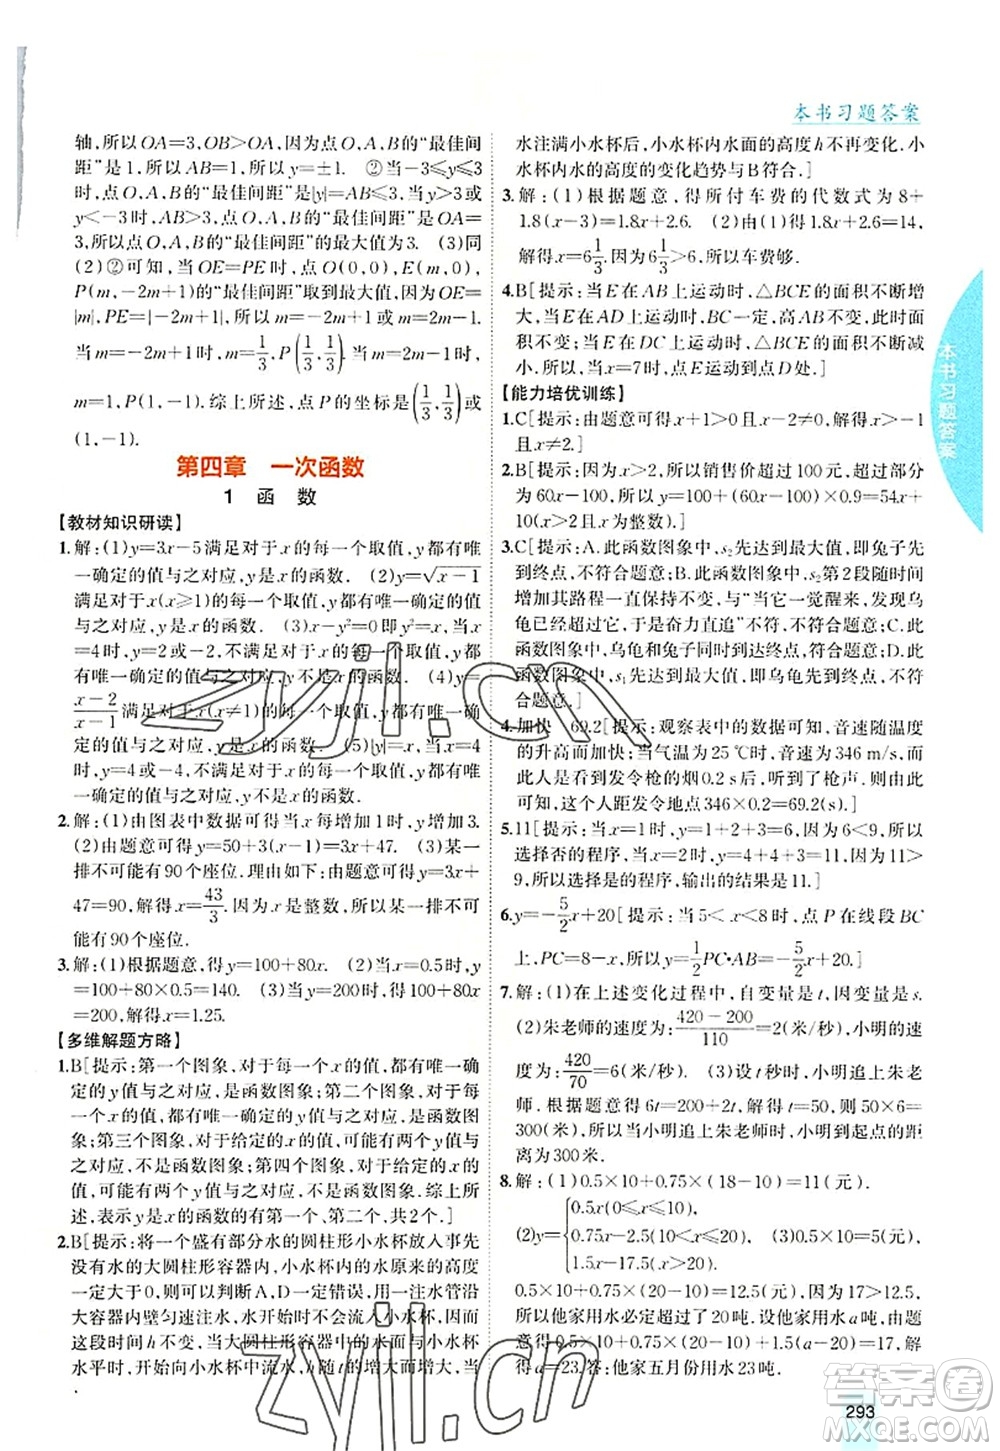 本书习题答案
轴,所以OA=3,OB>OA,所以点O,A,B的“最佳间
距”是1,所以AB=1,所以y=±1. ②当-3≤y≤3
时,点O,A,B的“最佳间距”是|y|=AB≤3,当y>3或
y<-3时,AB>3,点O,A,B的“最佳间距”是OA=
3,所以点O,A,B的“最佳间距”的最大值为3. (3)同
(2)②可知,当OE=PE时,点O(0,0),E(m,0),
P(m,-2m+1)的“最佳间距”取到最大值,因为OE=
|m|,PE=|-2m+1|,所以|m|=|-2m+1|.
当m=-2m+1时,m=1/3,P(1/3,1/3);当-m=
-2m+1时,m=1,P(1,-1).综上所述,点P的坐标是(1/3,1/3)或
(1,-1).
第四章 一次函数
1 函 数
【教材知识研读】
1.解:(1)y=3x-5满足对于x的每一个取值,y都有唯
一确定的值与之对应,y是x的函数. (2)y=√x-1
满足对于x(x≥1)的每一个取值,y都有唯一确定的值
与之对应,y是x的函数. (3)x-y²=0不满足,如当x
=4时,y=2或-2,所以y不是x的函数. (4)y=
x-2/x-1满足对于x(x≠1)的每一个取值,y都有唯一确
定的值与之对应,y是x的函数. (5)|y|=x不满足,当x=1时,y=±1,没有唯一
确定的值与之对应,y不是x的函数.
2.解:(1)由图表中数据可得当x每增加1时,y增加3.
(2)由题意可得y=50+3(x-1)=3x+47. (3)某一
排不可能有90个座位.理由如下:由题意可得y=3x+
47=90,解得x=43/3.因为x是整数,所以某一排不可
能有90个座位.
3.解:(1)根据题意,得y=100+80x. (2)当x=0.5时,y
=100+80×0.5=140. (3)当y=200时,100+80x=
200,解得x=1.25.
【多维解题方略】
1.B[提示:第一个图象,对于每一个x的值,都有唯一确
定的y值与之对应,是函数图象;第二个图象,对于每
一个x的值,都有唯一确定的y值与之对应,是函数图
象;第三个图象,对于给定的x的值,可能有两个y值与
之对应,不是函数图象;第四个图象,对于给定的x的
值,可能有两个y值与之对应,不是函数图象.综上所
述,表示y是x的函数的有第一个、第二个,共2个.]
2.B[提示:将一个盛有部分水的圆柱形小水杯放入事先
没有水的大圆柱形容器内,小水杯内的水原来的高度
一定大于0,则可以判断A,D一定错误,用注水管沿
大容器内壁匀速注水,水开始时不会流入小水杯,因而
这段时间h不变,当大圆柱形容器中的水面与小水杯
水平时,开始向小水杯中流水,h随t的增大而增大,当
水注满小水杯后,小水杯内水面的高度h不再变化.小
水杯内水的高度的变化趋势与B符合.]
3.解:(1)根据题意,得所付车费的代数式为8+
1.8(x-3)=1.8x+2.6. (2)根据题意,得1.8x+2.6=14,
解得x=6 1/3.因为6 1/3>6,所以车费够.
4.B[提示:当E在AB上运动时,△BCE的面积不断增
大;当E在AD上运动时,BC一定,高AB不变,此时面
积不变;当E在DC上运动时,△BCE的面积不断减
小.当x=7时,面积不变,则点E运动到点D处.]
【能力培优训练】
1.C[提示:由题意可得x+1>0且x-2≠0,解得x>-1
且x≠2.]
2.B[提示:因为x>2,所以销售价超过100元,超过部分
为60x-100,所以y=100+(60x-100)×0.9=54x+
10(x>2,且x为整数).]
3.C[提示:A.此函数图象中,s₂先达到最大值,即兔子先
到终点,不符合题意;B.此函数图象中,s₂第2段随时间
增加其路程一直保持不变,与“当它一觉醒来,发现乌
龟已经超过它,于是奋力直追”不符,不符合题意;C.此
函数图象中,乌龟和兔子同时到达终点,符合题意;D.此
函数图象中,s₁先达到最大值,即乌龟先到终点,不符
合题意.]
4.加快 69.2[提示:观察表中的数据可知,音速随温度
的升高而加快;当气温为25℃时,音速为346 m/s,而
此人是看到发令枪的烟0.2 s后,听到了枪声.由此
可知,这个人距发令地点346×0.2=69.2(m).]
5.11[提示:1+1+1+2+1=6,因为6<9,所以
选择否的程序,6+1+1+2+1=11.因为11>
9,所以选择是的程序,输出的结果是11.]
6.y=-5/2x+20[提示:当5<x<8时,点P在线段BC
上,PC=8-x,所以y=1/2PC·AB=-5/2x+20.]
7.解:(1)在上述变化过程中,自变量是t,因变量是s.
(2)朱老师的速度为:420-200/110=2(米/秒),小明的速度
为:420/70=6(米/秒). (3)设t秒时,小明追上朱老
师.根据题意得6t=200+2t,解得t=50,则50×6=
300(米),所以当小明追上朱老师时,小明到起点的距
离为300米.
8.解:(1)0.5×10+0.75×(18-10)=11(元).
(2)y={0.5x(0≤x≤10)
0.75x-2.5(10<x≤20)
1.5x-17.5(x>20). (3)因为0.5×10=5(元),
0.5×10+0.75×10=12.5(元),因为17>12.5,
所以他家用水必定超过20吨.设他家用水a吨,由题
意得0.5×10+0.75×(20-10)+1.5(a-20)=17,
解得a=23.答:他家五月份用水23吨.
本书习题答案
293
zyjl.cn
zyjl.cn
答案圈
MXQE.COM